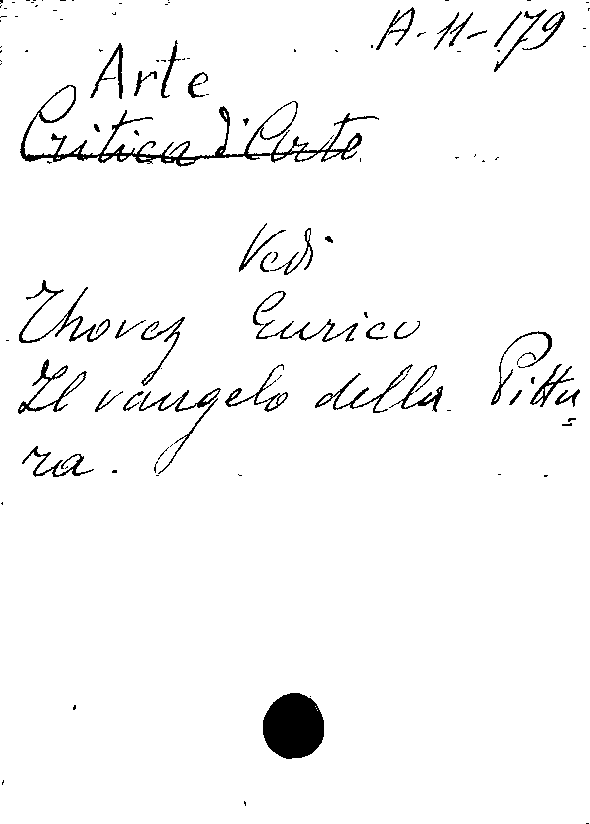 A-11-179
Arte
Critica d'Arte
Vedi
Thovez Enrico
Il vangelo della Pittu=
ra.